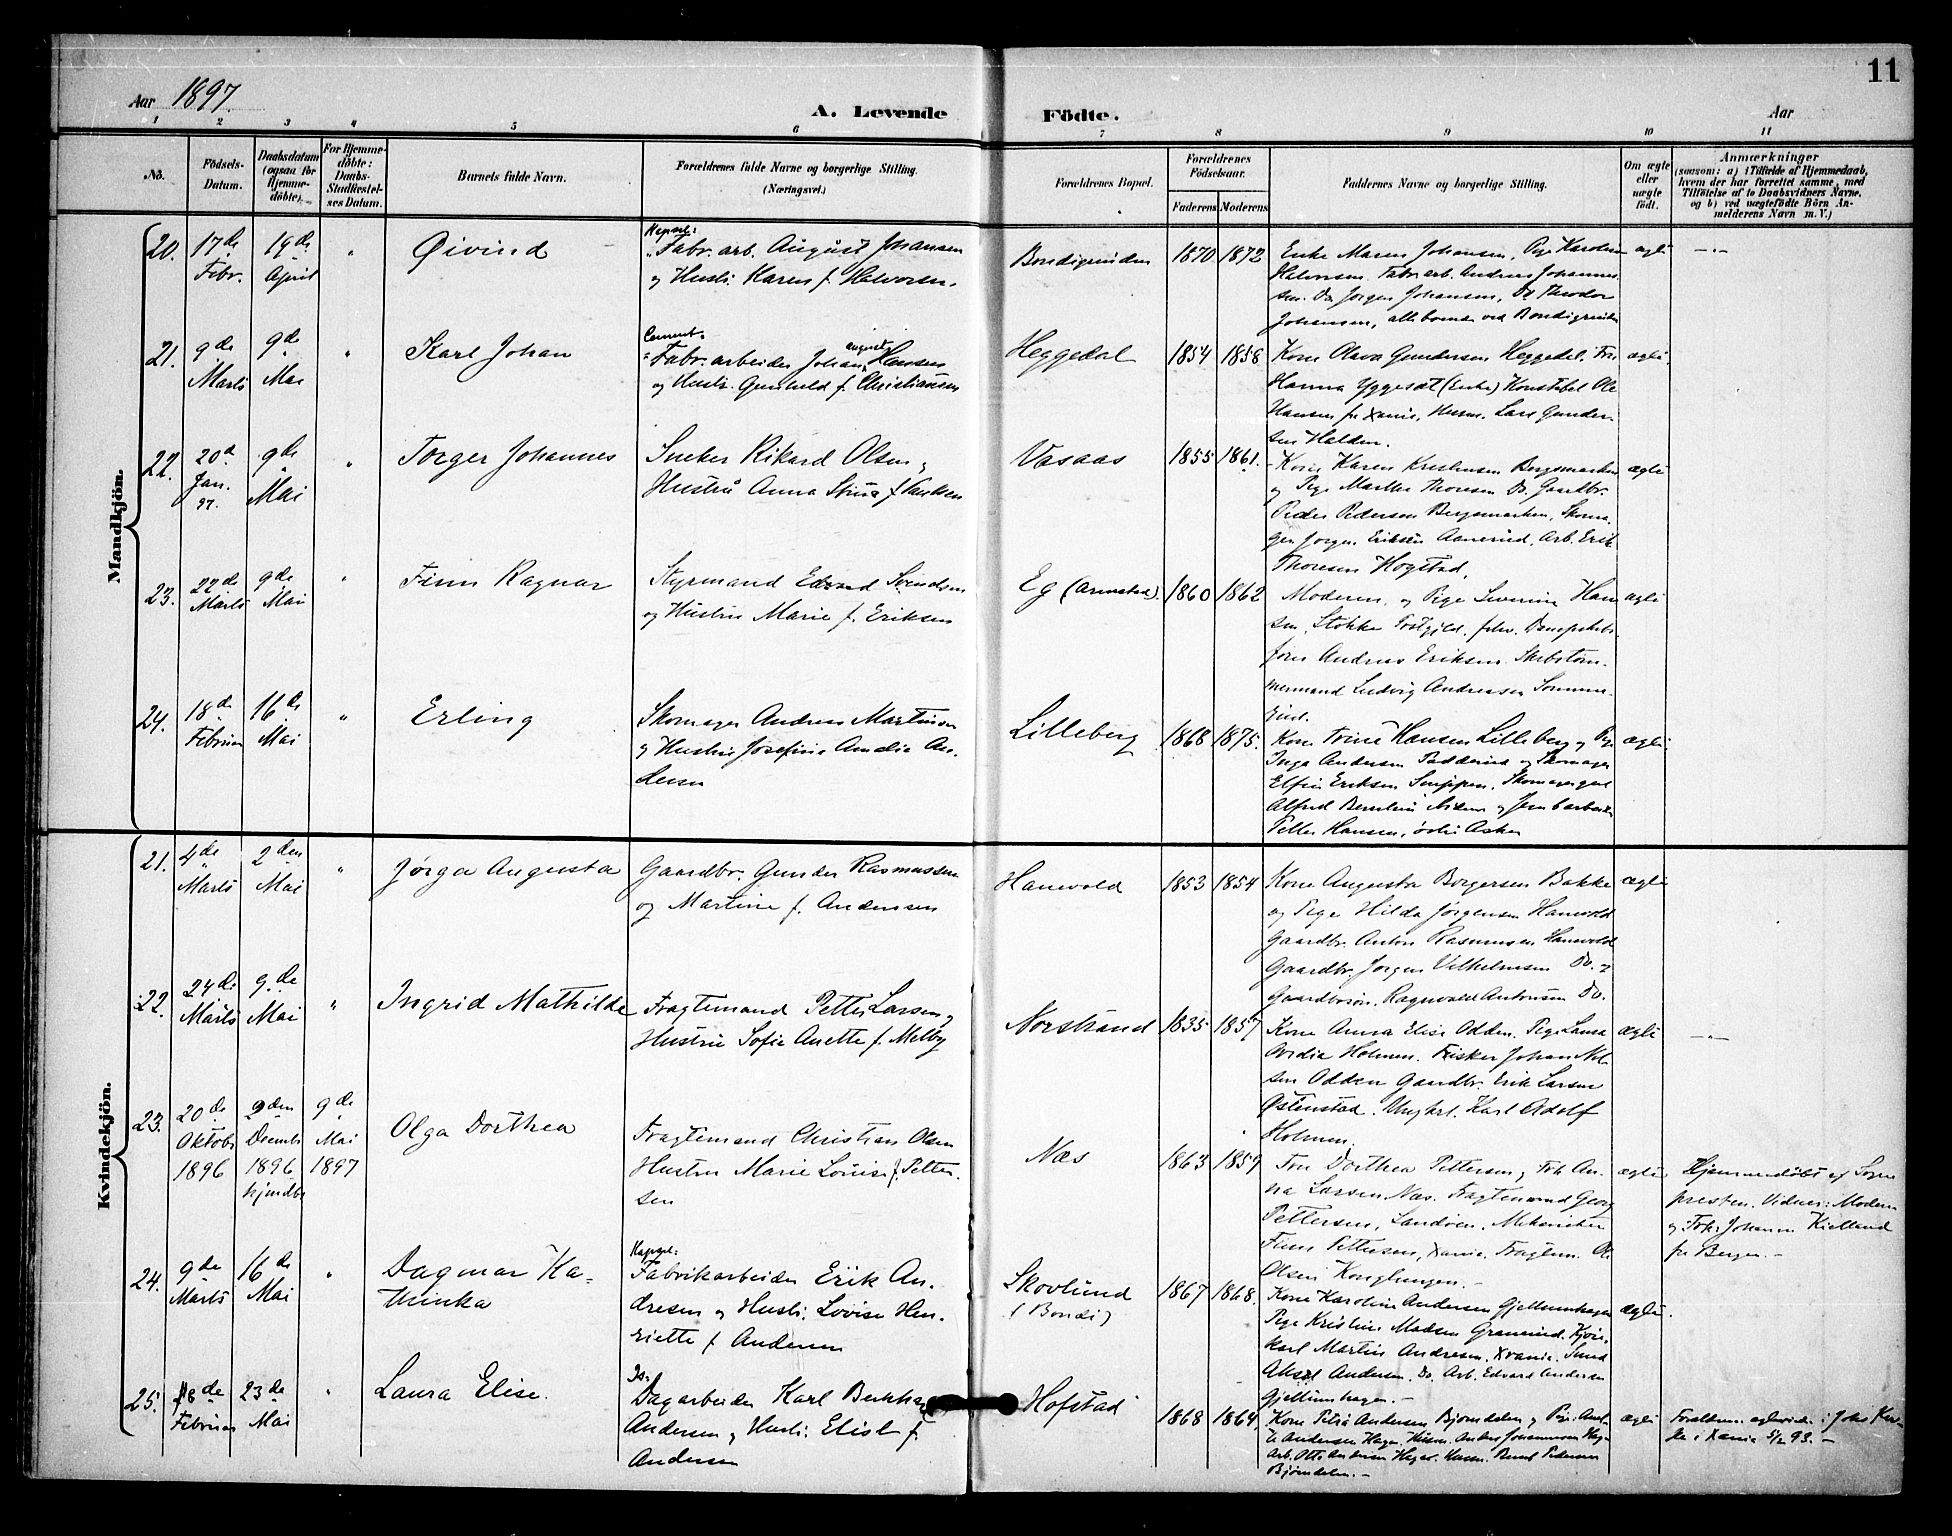 11
Aar 1897.
A. Levende Födte.
Aar
1 2 3 4 5 6 7 8 9 10 11
No.
Födsels-
Datum.
Daabsdatum
(ogsaa for
Hjemme-
döbte).
For Hjemme-
döbte:
Daabs-
Stadfæstel-
ses Datum.
Barnets fulde Navn.
Forældrenes fulde Navne og borgerlige Stilling.
(Næringsvei.)
Forældrenes Bopæl.
Forældrenes
Födselsaar.
Faderens Moderens
Faddernes Navne og borgerlige Stilling.
Om ægte
eller
uægte
födt.
Anmærkninger
(saasom: a) i Tilfælde af Hjemmedaab,
hvem der har forrettet samme, med
Tilföielse af to Daabsvidners Navne,
og b) ved uægtefödte Börn An-
melderens Navn m. V.)
Mandkjön.
20. 17de Febr. 19de April " Øivind
Fabr. arb. August Johansen
og Hustr. Karen f. Halvorsen.
Bondigrinden 1870 1872
Enke Maren Johansen, Pige Karoline
Halvorsen. Fabr. arb. Andreas Johannes-
sen. Do Jørgen Johansen, Do Theodor
Johansen, alle boende ved Bondigrinden
ægte —"—
21. 9de Marts 9de Mai " Karl Johan
Cement-
Fabr. arbeider Johan August Hansen
og Hustr. Gunhild f. Christiansen
Heggedal 1854 1858
Kone Olava Gundersen Heggedal. Fru
Hanna Yggeset (Enke) Konstabel Ole
Hansen fr Xania, Husm. Lars Gunder-
sen Halden.
ægte
22. 20de Jan. 97. 9de Mai " Torger Johannes
Sneker Rikard Olsen og
Hustru Anna Stina f.
Vasaas 1855 1861.
Kone Karen Kristensen Bergsmarken
og Pige Marthe Thoresen Do. Gaardbr.
Peder Pedersen Bergsmarken, Skoma-
ger Jørgen Eriksen Aanerud, Arb. Erik
Thoresen Hogstad.
ægte
23. 22de Marts 9de Mai " Finn Ragnar
Styrmand Edvard Svendsen
og Hustru Marie f. Eriksen
Eg (Arnestad). 1860 1862
Moderen, og Pige Severine Han-
sen, Stokke
Andreas Eriksen. Skibstøm-
mermand Ludvig Andreasen
ægte
24. 18de Februar 16de Mai " Erling
Skomager Andreas Martinsen
og Hustru Josefine Amalia An-
dersen
Lilleberg 1868 1875.
Kone Trine Hansen Lilleberg og Pige
Inga Andersen Padderud og Skomager
Eriksen
Alfred
Petter Hansen, Asker
ægte
Kvindekjön.
21. 4de Marts 2den Mai " Jørga Augusta
Gaardbr. Gunder Rasmussen
og Martine f. Andersen
Hanevold 1853 1854
Kone Augusta Borgersen Bakke
og Pige Hilda Jørgensen Hanevold
Gaardbr. Anton Rasmussen Hanevold
Gaardbr. Jørgen Vilhelmsen Do. og
Gaardbrsøn. Ragnvald Antonsen Do.
ægte
22. 24de Marts 9de Mai " Ingrid Mathilde
Fragtemand Petter Larsen og
Hustru Sofie Anette f. Melby
Norstrand 1835 1857
Kone Anna Elise Odden. Pige Laura
Ovidia Holmen. Fisker Johan Nil-
sen Odden Gaardbr. Erik Larsen
Østenstad. Ungkrl. Karl Adolf
Holmen.
ægte —"—
23. 20de Oktobr 1896 9den Decembr 1896 hjemdbt 9de Mai 1897 Olga Dorthea
Fragtemand Christian Olsen
Hustru Marie Louise f. Petter-
sen
Næs 1863 1859
Fru Dorthea Pettersen og Frk. An-
na Larsen Næs. Fragtemand Georg
Pettersen, Landøen. Mekaniker
Finn Pettersen, Xania. Fragtem. Ole
Olsen Konglungen.—
ægte
Hjemmedøbt af Sogne-
presten. Vidner: Moderen
og Frk. Johanne Kielland
fr Bergen.—
24. 9de Marts 16de Mai " Dagmar Ka-
thinka
Fabrikarbeider Erik An-
dresen og Hustr. Lovise Hen-
riette f. Andersen
Skovlund
(Bondi)
1867 1868.
Kone Karoline Andersen Gjellumhagen
Pige Kristine Madsen Granerud. Kjøre-
karl Martin Andresen, Xania. Smed
Aksel Andersen. Do. Arb. Edvard Andersen
Gjellumhagen.—
ægte.
25. 18de Februar 23de Mai " Laura Elise.
Dagarbeider Karl
Andersen og Hustr. Elise f.
Andersen
Hofstad 1868 1864
Kone Petra Andersen Bjørndalen og Pige
Andersen Hagen Husm. Anders Johannessen
Arb. Otto Andersen Husm. Bernt Pedersen
Bjørndalen.—
ægte
Forældrene ægteviede i Johs Kir-
ke i Xania 5/2 93.—